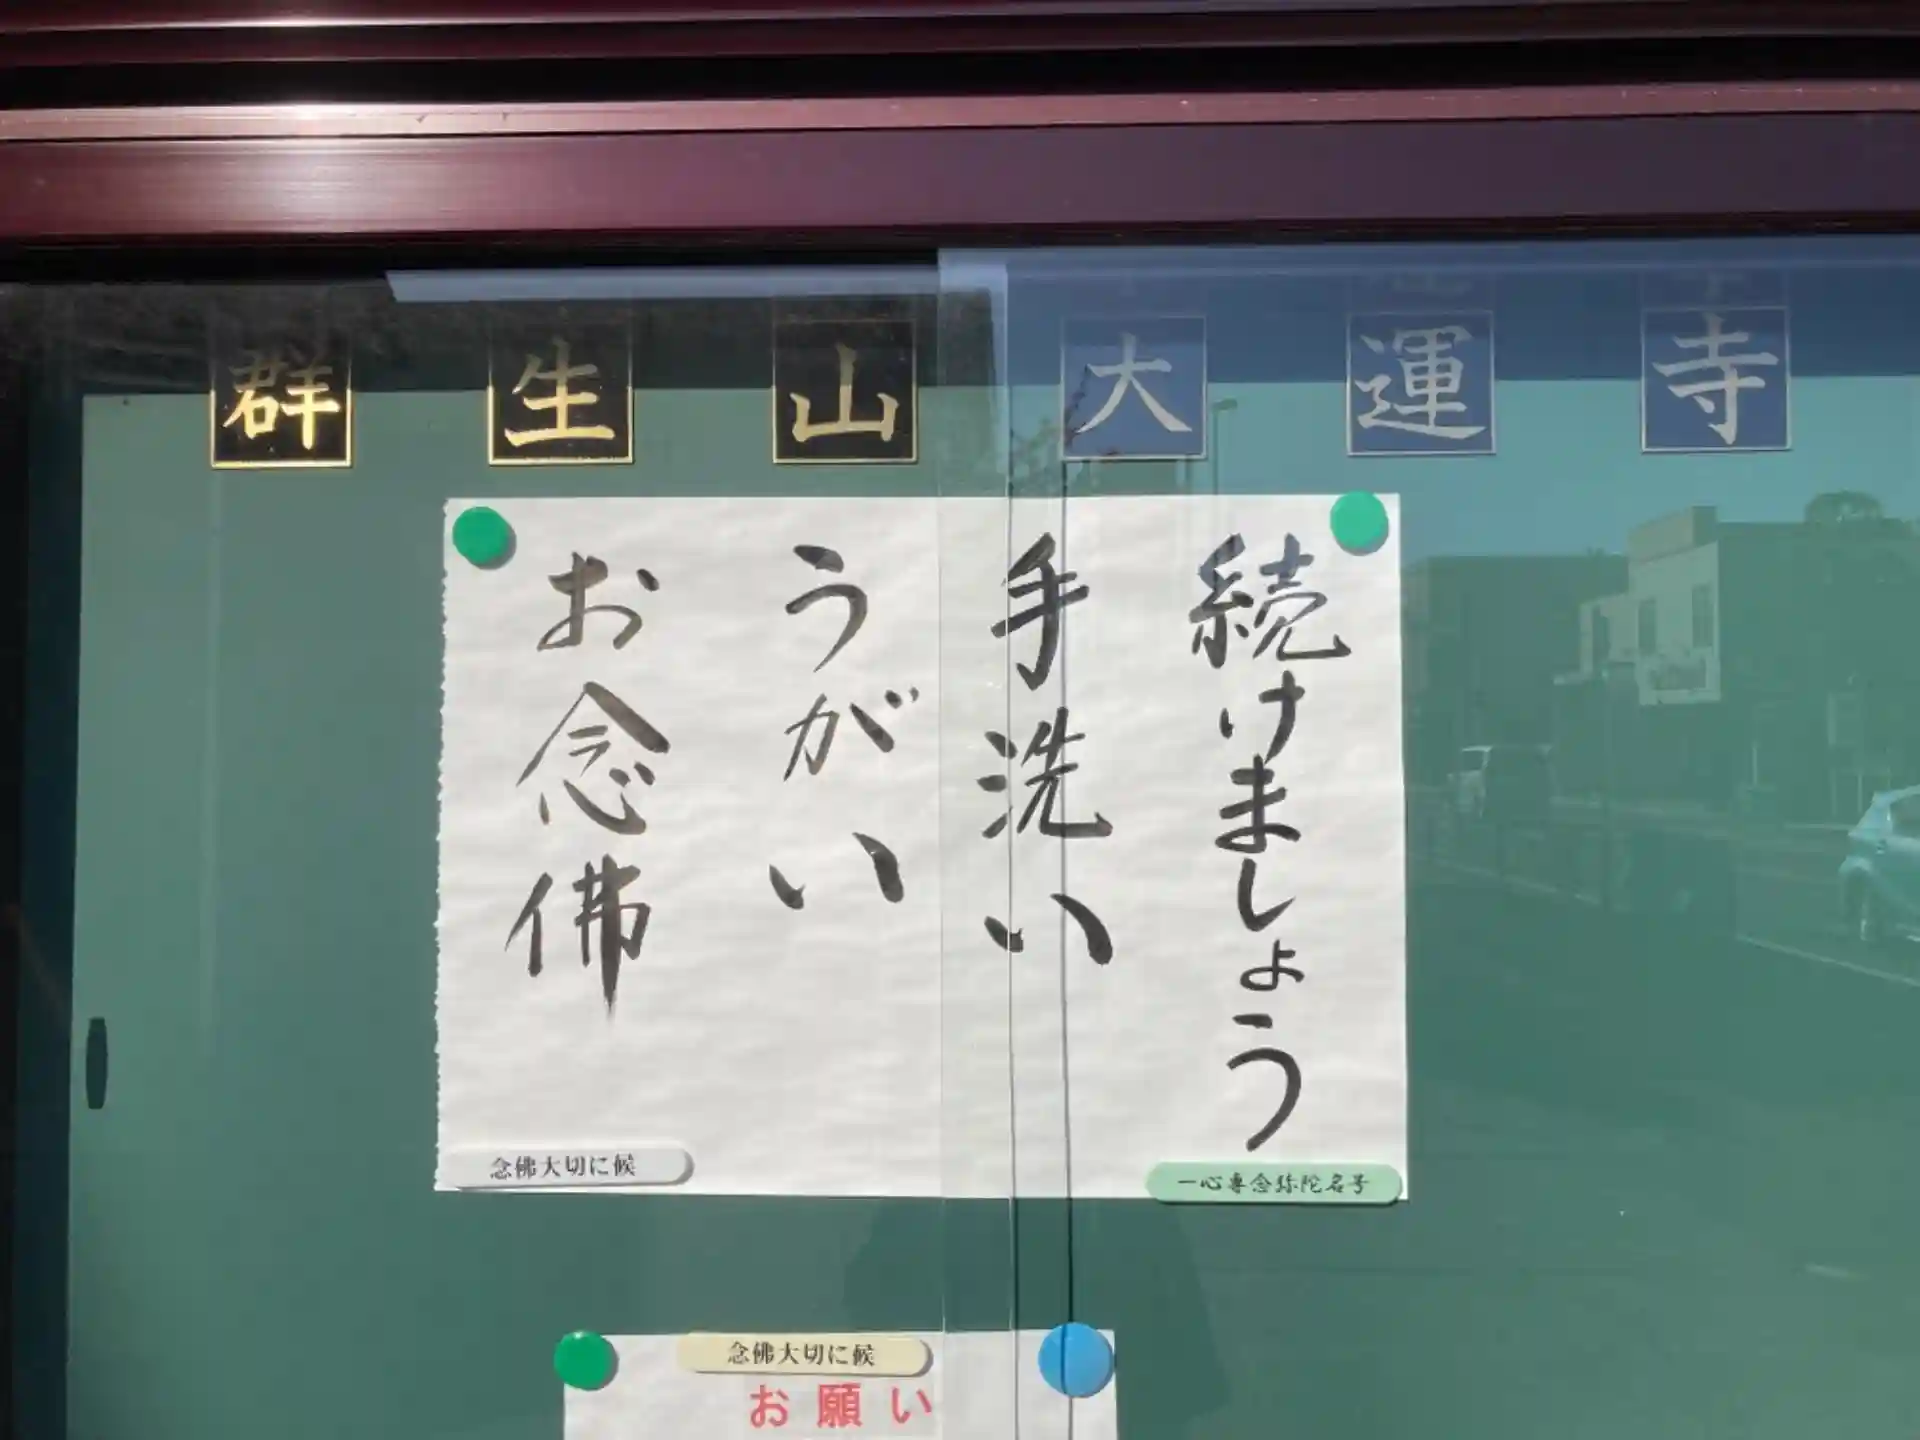 群生山大運寺
続けましょう
手洗い
うがい
お念佛
念佛大切に候
一心専念弥陀名号
念佛大切に候
お願い